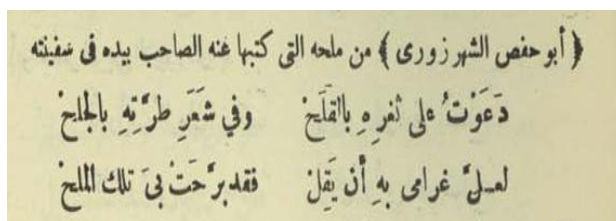 ﴿ أبو حفص الشهرزورى ﴾ من ملحه التى كتبها عنه الصاحب بيده فى سفينته
دَعَوْتُ على ثغرِهِ بالقلَحْ وفي شَعَرِ طرَّتِهِ بالجلحْ
لعلَّ غرامى بهِ أن يَقِلْ فقد برَّحَتْ بىَ تلك الملحْ